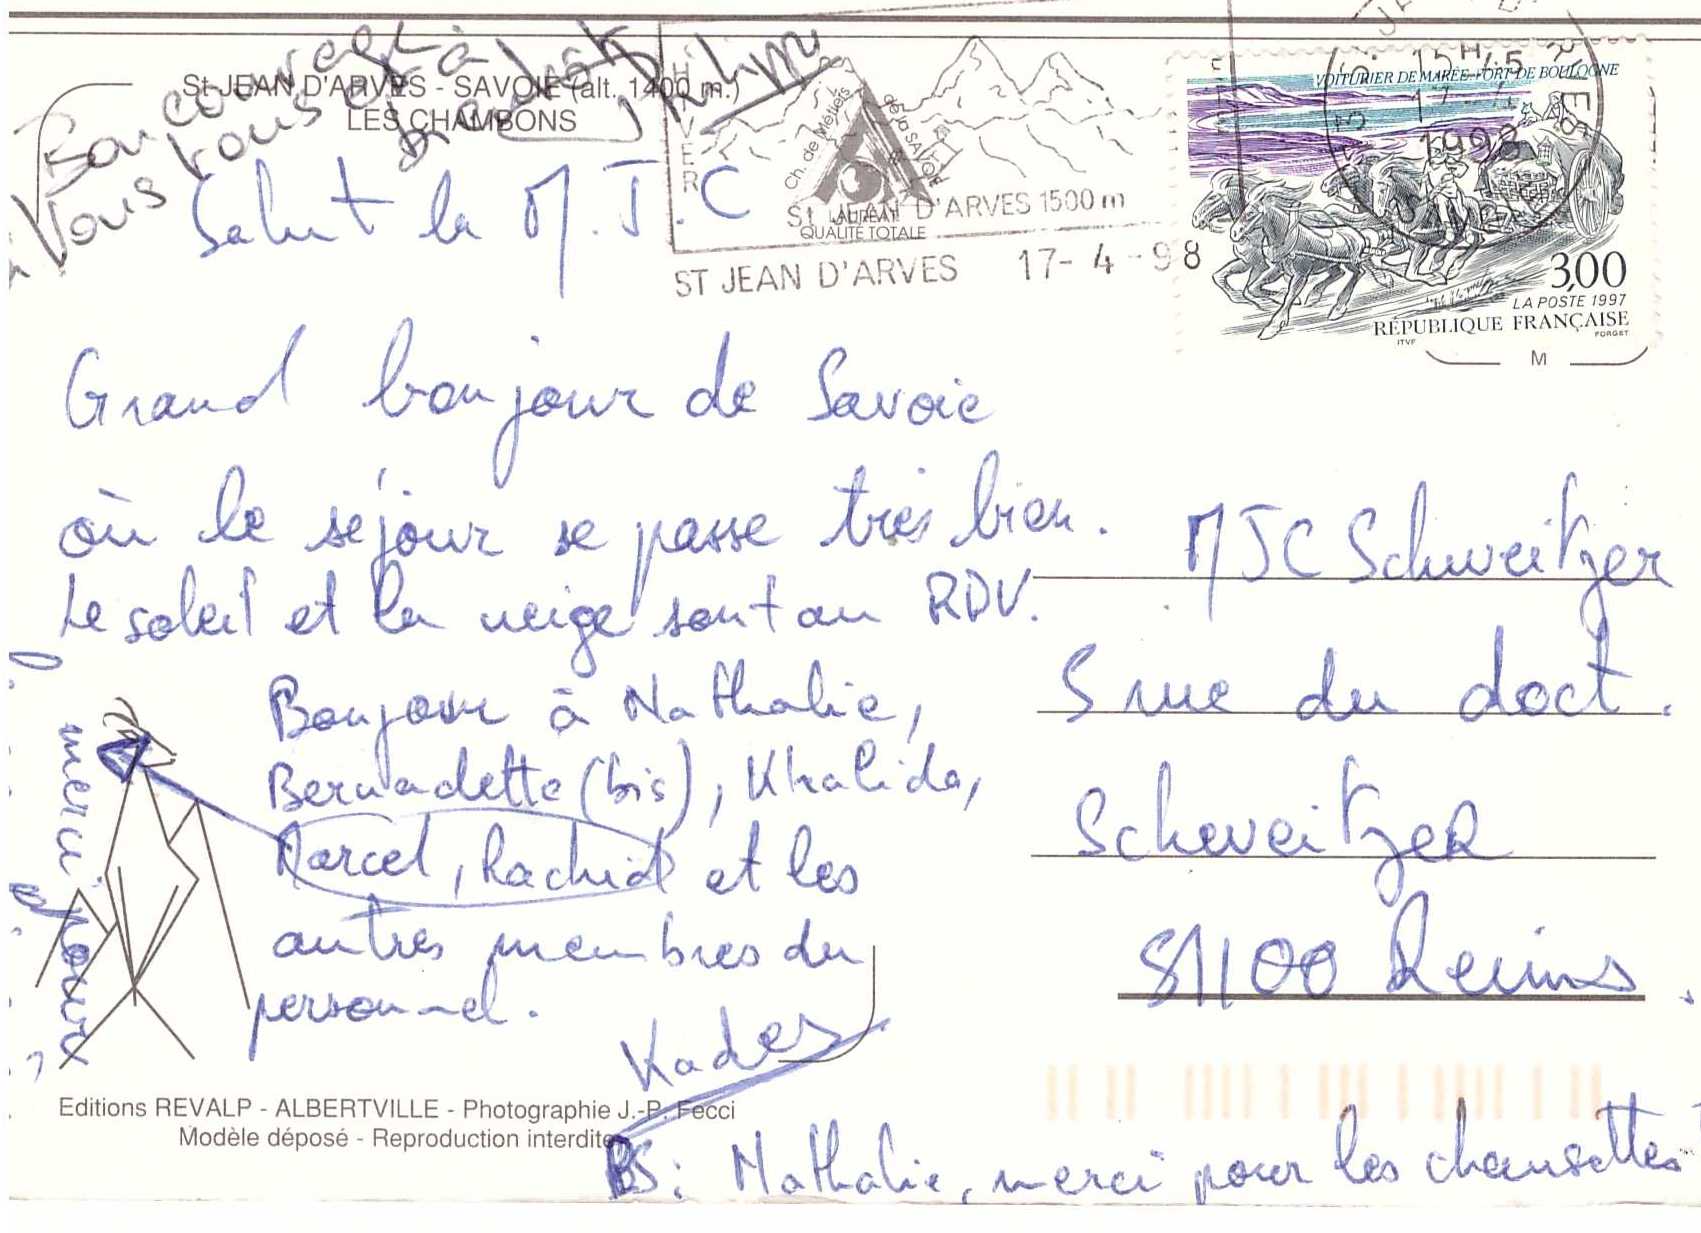 Bon courage
à vous et à
bientôt
St JEAN D'ARVES - SAVOIE (alt. 1400 m.)
LES CHAMBONS
Salut la M.J.C
Grand bonjour de Savoie
où le séjour se passe très bien.
Le soleil et la neige sont au RDV.
Bonjour à Nathalie,
Bernadette (bis), Khalida,
Marcel, Rachid et les
autres membres du
personnel.
Kader
PS: Nathalie, merci pour les chaussettes
merci pour
Editions REVALP - ALBERTVILLE - Photographie J.-P. Fecci
Modèle déposé - Reproduction interdite
HIVER
Ch. de Métiers de la SAVOIE
LAURÉAT
QUALITÉ TOTALE
St JEAN D'ARVES 1500 m
ST JEAN D'ARVES 17-4-98
VOITURIER DE MARÉE-PORT DE BOULOGNE
15H45
17-4
1998
3,00
LA POSTE 1997
RÉPUBLIQUE FRANÇAISE
ITVF
FORGET
M
MJC Schweitzer
5 rue du doct.
Schweitzer
51100 Reims.